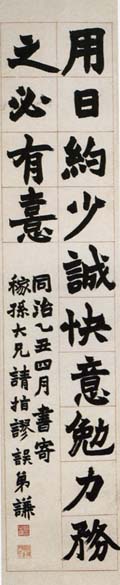 用日約少誠快意勉力務
之必有憙
同治乙丑四月書寄
稼孫大兄請拍謬誤弟謙